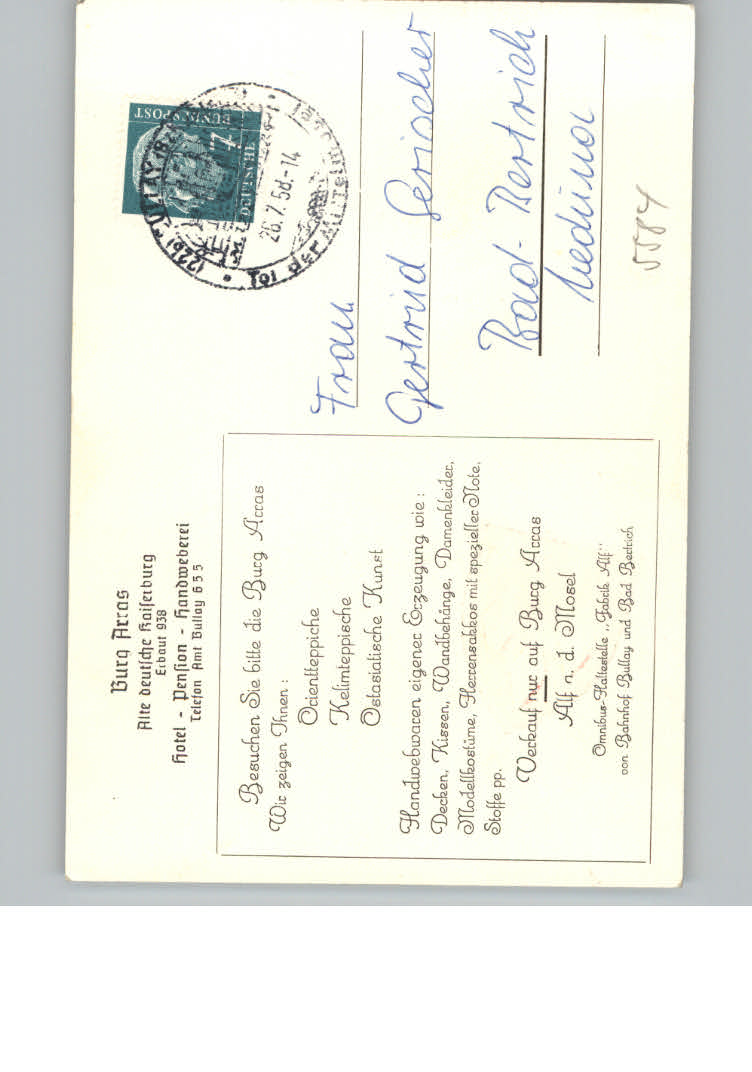 Burg Arras
Alte deutsche Kaiserburg
Erbaut 938
Hotel - Pension - Handweberei
Telefon Amt Bullay 655
Besuchen Sie bitte die Burg Arras
Wir zeigen Ihnen:
Orientteppiche
Kelimteppische
Ostasiatische Kunst
Handwebwaren eigener Erzeugung wie:
Decken, Kissen, Wandbehänge, Damenkleider,
Modellkostüme, Herrensakkos mit spezieller Note,
Stoffe pp.
Verkauf nur auf Burg Arras
Alf n. d. Mosel
Omnibus-Haltestelle „Fabrik Alf"
von Bahnhof Bullay und Bad Bertrich
DEUTSCHE
BUNDESPOST
7
(22b) BULLAY
26.7.58.-14
Tor der
Frau
Gertrud Gerischer
Bad-Bertrich
5584